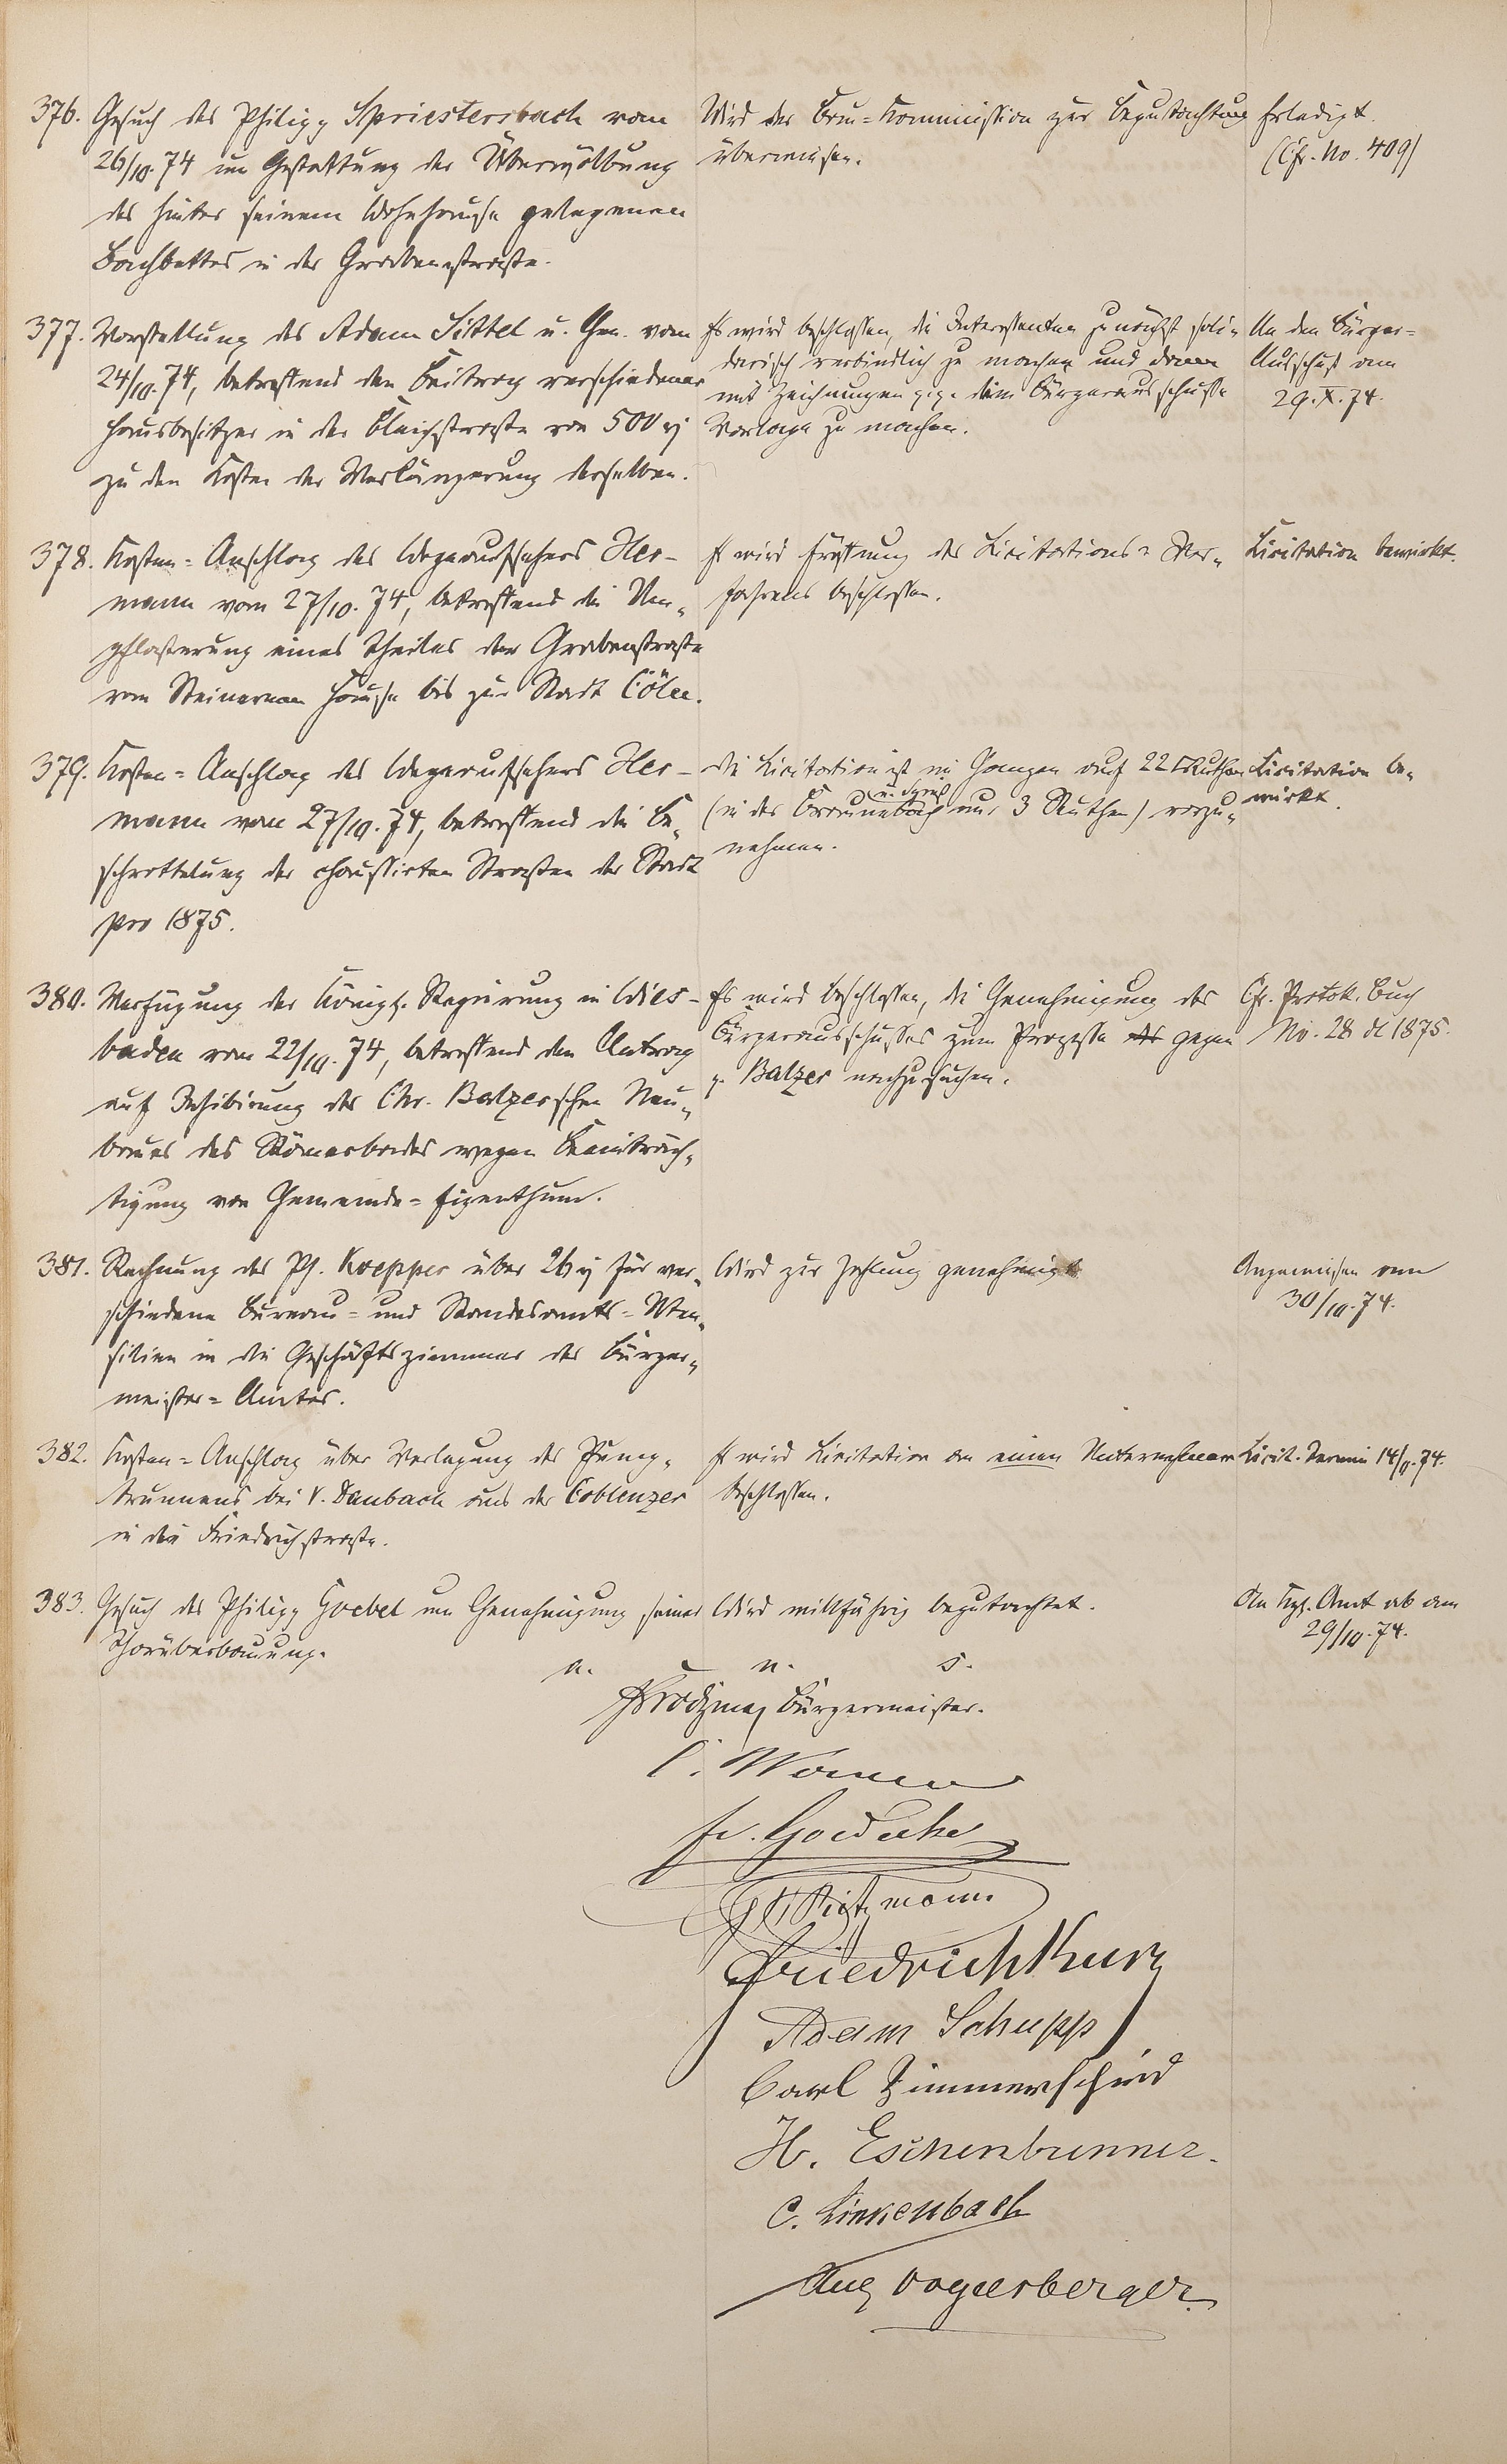 376. Gesuch des Philipp Spriestersbach vom
26/10.74 um Gestattung der Überwölbung
des hinter seinem Wohnhause gelegenen
Bachbettes in der Grabenstraße.
Wird der Bau-Kommission zur Begutachtung
überwiesen.
Erledigt.
(Cfr. No. 409)
377. Vorstellung des Adam Sittel u. Gen. vom
24/10.74, betreffend den Beitrag verschiedener
Hausbesitzer in der Bleichstraße von 500
zu den Kosten der Verlängerung derselben.
Es wird beschlossen, die Interessenten zunächst soli-
darisch verbindlich zu machen und dann
mit Zeichnungen dem Bürgerausschusse
Vorlage zu machen.
An den Bürger-
Ausschuß am
29.X.74.
378. Kosten-Anschlag des Wegeaufsehers Her-
mann vom 27/10.74, betreffend die Um-
pflasterung eines Theiles der Grabenstraße
vom Steinernen Hause bis zur Stadt Cöln.
Es wird Eröffnung des Licitations-Ver-
fahrens beschlossen.
Licitation bewirkt.
379. Kosten-Anschlag des Wegeaufsehers Her-
mann vom 27/10.74, betreffend die Be-
schrottelung der chaussirten Straßen der Stadt
pro 1875.
Die Licitation ist im Ganzen auf 22 Ruthen
(in der nur 3 Ruthen) vorzu-
nehmen.
Licitation be-
wirkt.
380. Verfügung der Königl. Regierung in Wies-
baden vom 22/10.74, betreffend den Antrag
auf Inhibirung des Chr. Balzer'schen Neu-
baues des Römerbades wegen Beeinträch-
tigung von Gemeinde-Eigenthum.
Es wird beschlossen, die Genehmigung des
Bürgerausschusses zum Prozesse gegen
p. Balzer nachzusuchen.
Cfr. Protok. Buch
No. 28 de 1875.
381. Rechnung des Ph. Koepper über 26 für ver-
schiedene Bureau- und Standesamts-Uten-
silien in die Geschäftszimmer des Bürger-
meister-Amtes.
Wird zur Zahlung genehmigt
Angewiesen am
30/10.74.
382. Kosten-Anschlag über Verlegung des Pump-
brunnens bei V. Daubach aus der Coblenzer
in die Friedrichstraße.
Es wird Licitation an einen Unternehmer
beschlossen.
Licit. Termin 14/11.74.
383. Gesuch des Philipp Goebel um Genehmigung seiner
Thorüberbauung.
Wird willfährig begutachtet.
An Kgl. Amt ab am
29/10.74.
a. u. s.
Bürgermeister.
Fr. Goedecke
Friedrich Kurz
Adam Schupp
Carl Zimmerschied
H. Eschenbrenner.
C. Linkenbach
Aug Vogelsberger.